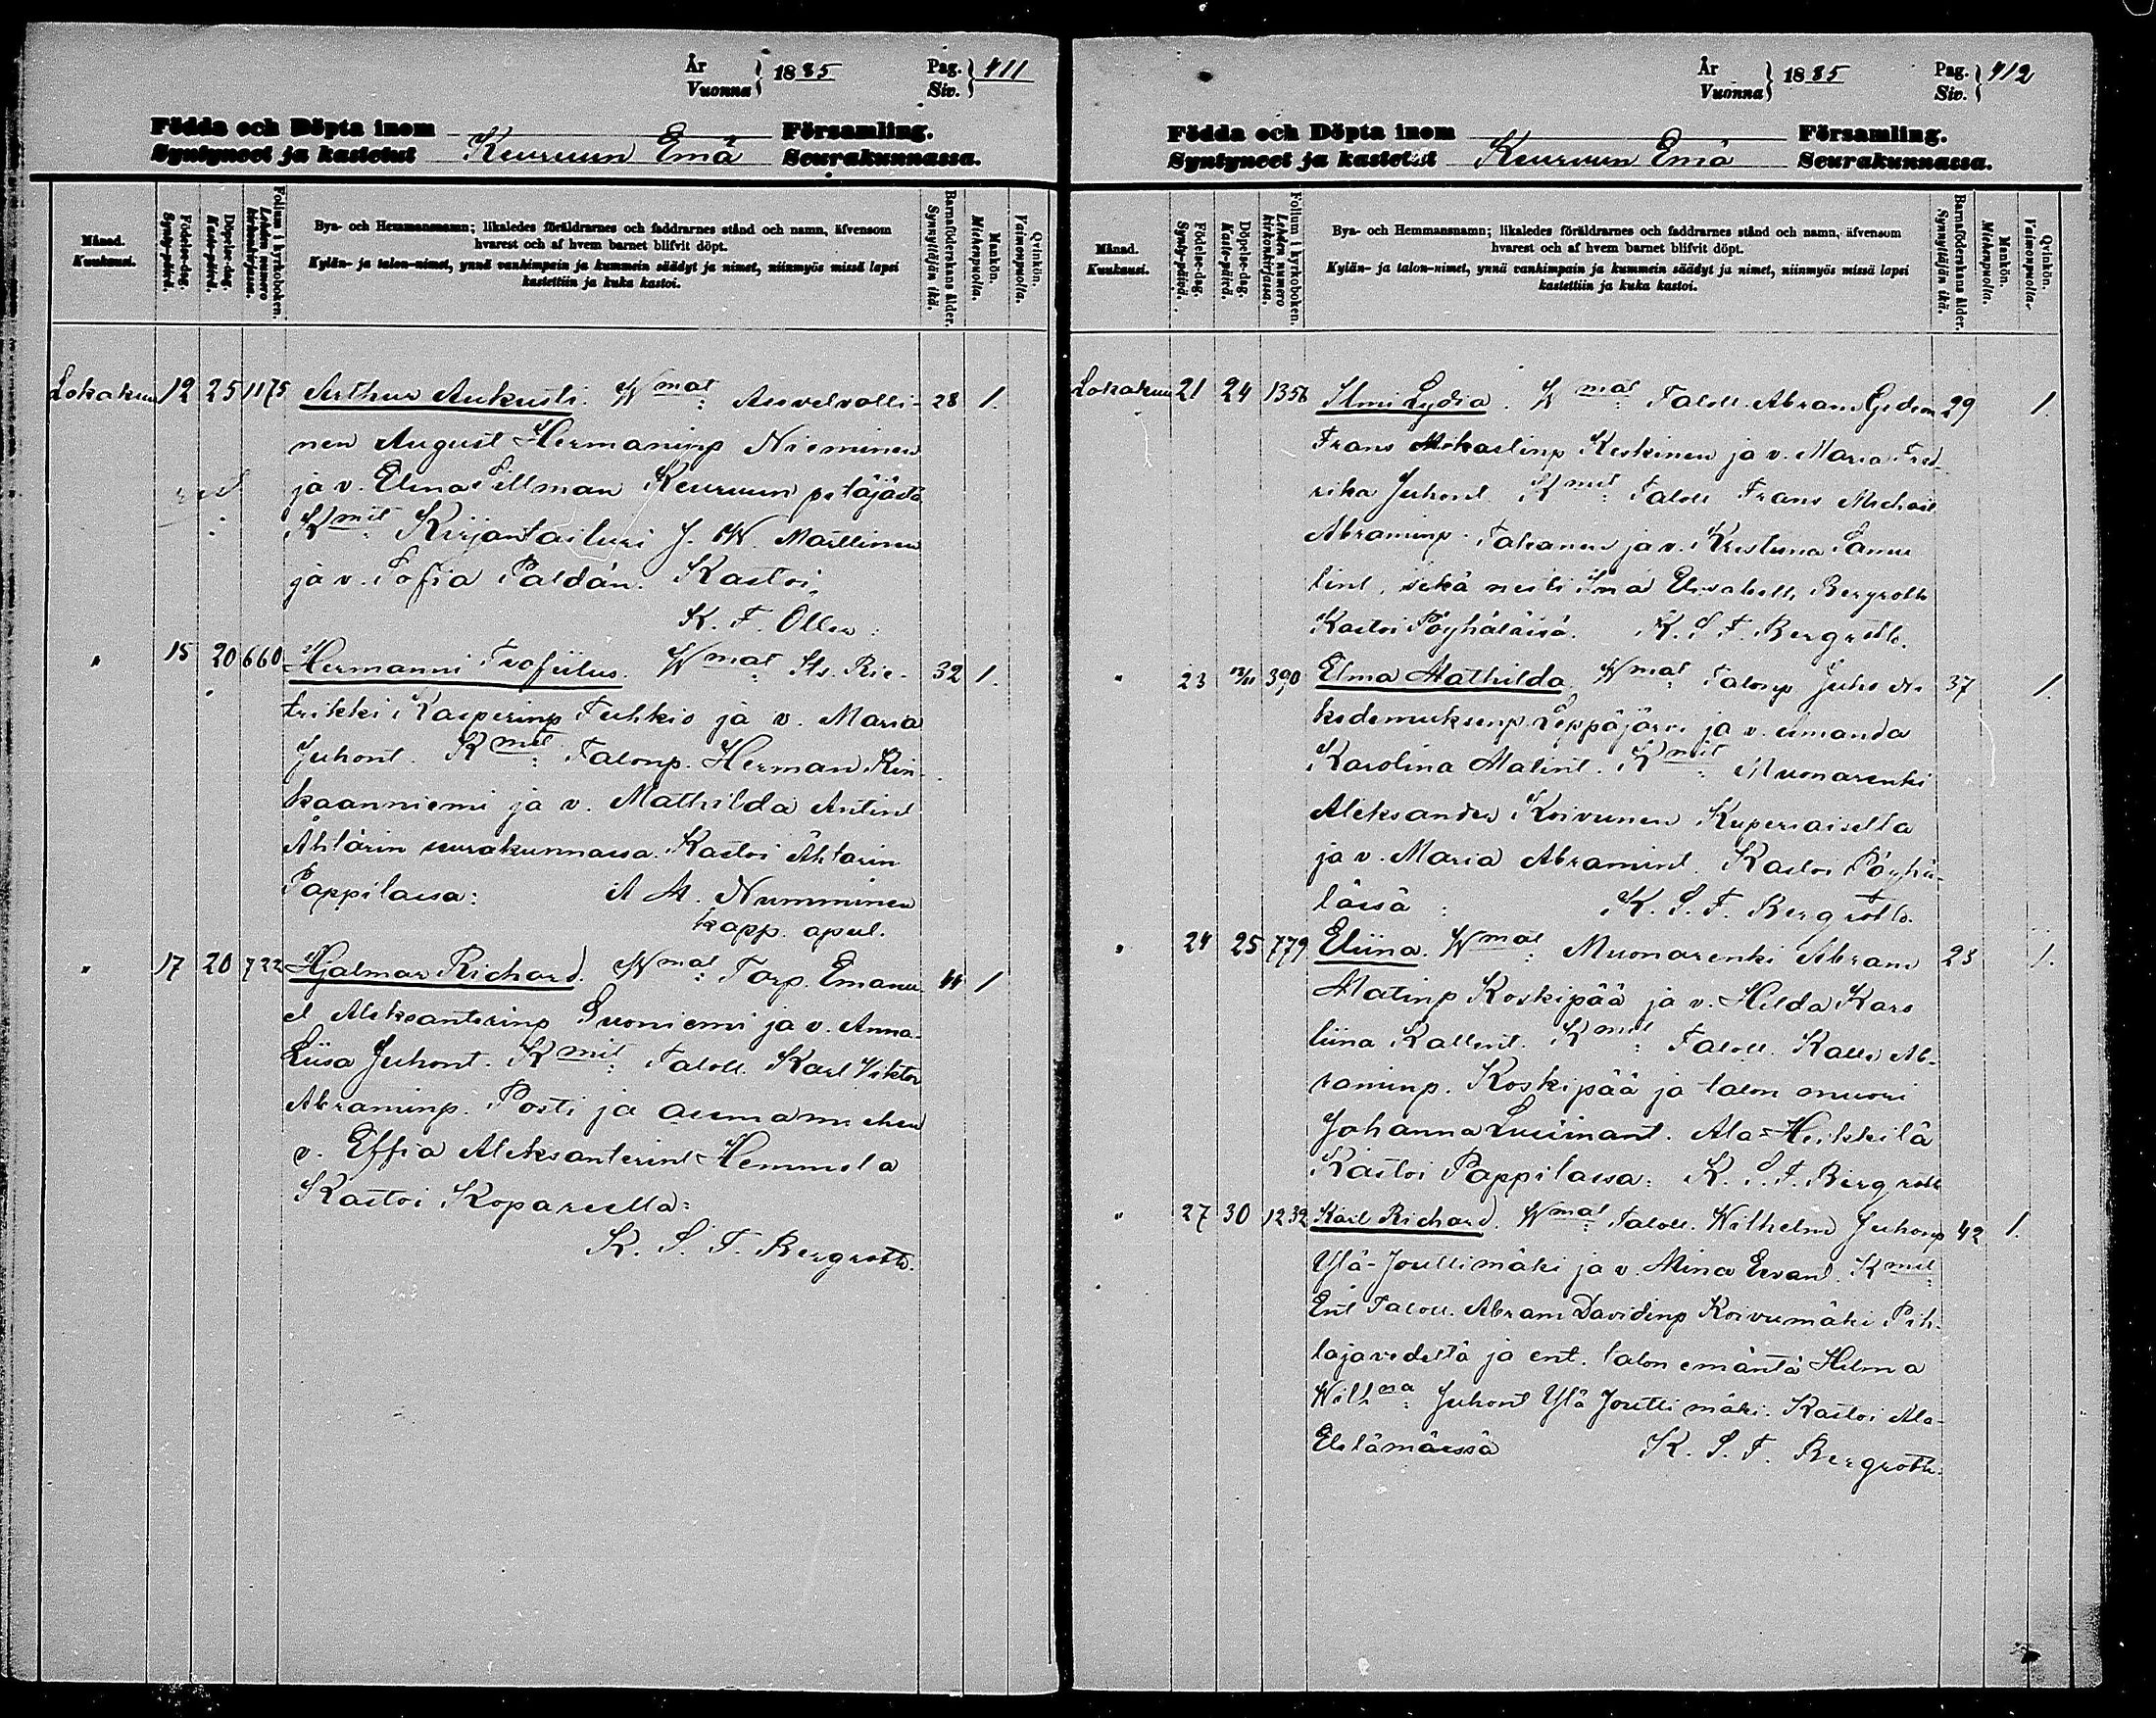 År
Vuonna } 1885
Pag.
Siv. } 411
Födda och Döpta inom Församling.
Syntyneet ja kastetut Keuruun Emä Seurakunnassa.
Månad.
Kuukausi.
Födelse-dag.
Synty-päivä.
Döpelse-dag.
Kaste-päivä.
Folium i kyrkoboken.
Lehden numero
kirkonkirjassa.
Bya- och Hemmansnamn; likaledes föräldrarnes och faddrarnes stånd och namn, äfvensom
hvarest och af hvem barnet blifvit döpt.
Kylän- ja talon-nimet, ynnä vanhimpain ja kummein säädyt ja nimet, niinmyös missä lapsi
kastettiin ja kuka kastoi.
Barnaföderskans ålder.
Synnyttäjän ikä.
Mankön.
Miehenpuolia.
Qvinkön.
Vaimonpuolia.
Lokakuu 12 25 1175 Arthur Aukusti. Wmat: Asevelvolli- 28 1.
nen August Hermaninp Nieminen
ja v. Elina Sillman Keuruun pitäjästä
Kmit: Kirjantailuri J. W. Marttinen
ja v. Sofia Paldán. Kastoi,
K. F. Ollen:
" 15 20 660 Hermanni Trofiilus. Wmat: Its. Rie- 32 1.
trikki Kasperinp Tuhkio ja v. Maria
Juhont. Kmit: Talonp. Herman Rin-
kaanniemi ja v. Mathilda Antint
Ähtärin seurakunnassa. Kastoi Ähtärin
Pappilassa: A M. Numminen
kapp. apul.
" 17 20 722 Hjalmar Richard. Wmat: Torp. Emanu- 44 1
el Aleksanterinp Suoniemi ja v. Anna-
Liisa Juhont. Kmit: Taloll. Karl Viktor
Abraminp. Posti ja asemamiehen
v. Effia Aleksanterint Hemmola
Kastoi Kopareella:
K. S. F. Bergroth.
År
Vuonna } 1885
Pag.
Siv. } 412
Födda och Döpta inom Församling.
Syntyneet ja kastetut Keuruun Emä Seurakunnassa.
Månad.
Kuukausi.
Födelse-dag.
Synty-päivä.
Döpelse-dag.
Kaste-päivä.
Folium i kyrkoboken.
Lehden numero
kirkonkirjassa.
Bya- och Hemmansnamn; likaledes föräldrarnes och faddrarnes stånd och namn, äfvensom
hvarest och af hvem barnet blifvit döpt.
Kylän- ja talon-nimet, ynnä vanhimpain ja kummein säädyt ja nimet, niinmyös missä lapsi
kastettiin ja kuka kastoi.
Barnaföderskans ålder.
Synnyttäjän ikä.
Mankön.
Miehenpuolia.
Qvinkön.
Vaimonpuolia.
Lokakuu 21 24 1356 Ilmi Lydia. Wmat: Taloll. Abram Gedeon 29 1.
Frans Mikaelinp Keskinen ja v. Maria Fred-
rika Juhont. Kmit: Taloll Frans Michael
Abraminp. Tahanen ja v. Kristiina Samu-
lint, sekä neiti Ina Elisabeth Bergroth
Kastoi Pöyhälässä. K. S. F. Bergroth.
" 23 12/11 390 Elma Mathilda Wmat: Talonp Juho Ni- 37 1.
kodemuksenp. Leppäjärvi ja v. Amanda
Karolina Matint. Kmit: Muonarenki
Aleksander Koivunen Kuperiaisella
ja v. Maria Abramint. Kastoi Pöyhä-
lässä: K. S. F. Bergroth.
" 24 25 779 Eliina. Wmat: Muonarenki Abram 23 1.
Matinp Koskipää ja v. Hilda Karo
liina Kallent. Kmit: Taloll. Kalle Ab-
raminp. Koskipää ja talon muori
Johanna Luumant. Ala-Heikkilä
Kastoi Pappilassa: K. S. F. Bergroth
" 27 30 1232 Karl Richard. Wmat: Taloll. Wilhelm Juhonp 42 1.
Ylä-Jouttimäki ja v. Mina Eevant. Kmit:
Ent Taloll. Abram Davidinp Koivumäki Pih-
lajavedeltä ja ent. talon emäntä Helma
Wilhna: Juhont Ylä Jouttimäki. Kastoi Ala-
Elälämäessä K. S. F. Bergroth.